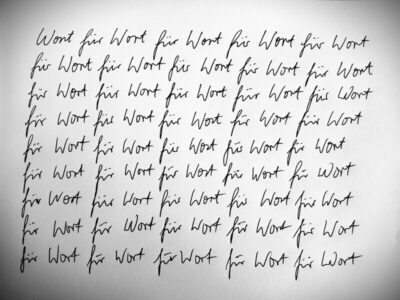 Wort für Wort für Wort für Wort für Wort
für Wort für Wort für Wort für Wort für Wort
für Wort für Wort für Wort für Wort für Wort
für Wort für Wort für Wort für Wort für Wort
für Wort für Wort für Wort für Wort für Wort
für Wort für Wort für Wort für Wort für Wort
für Wort für Wort für Wort für Wort für Wort
für Wort für Wort für Wort für Wort für Wort
für Wort für Wort für Wort für Wort für Wort